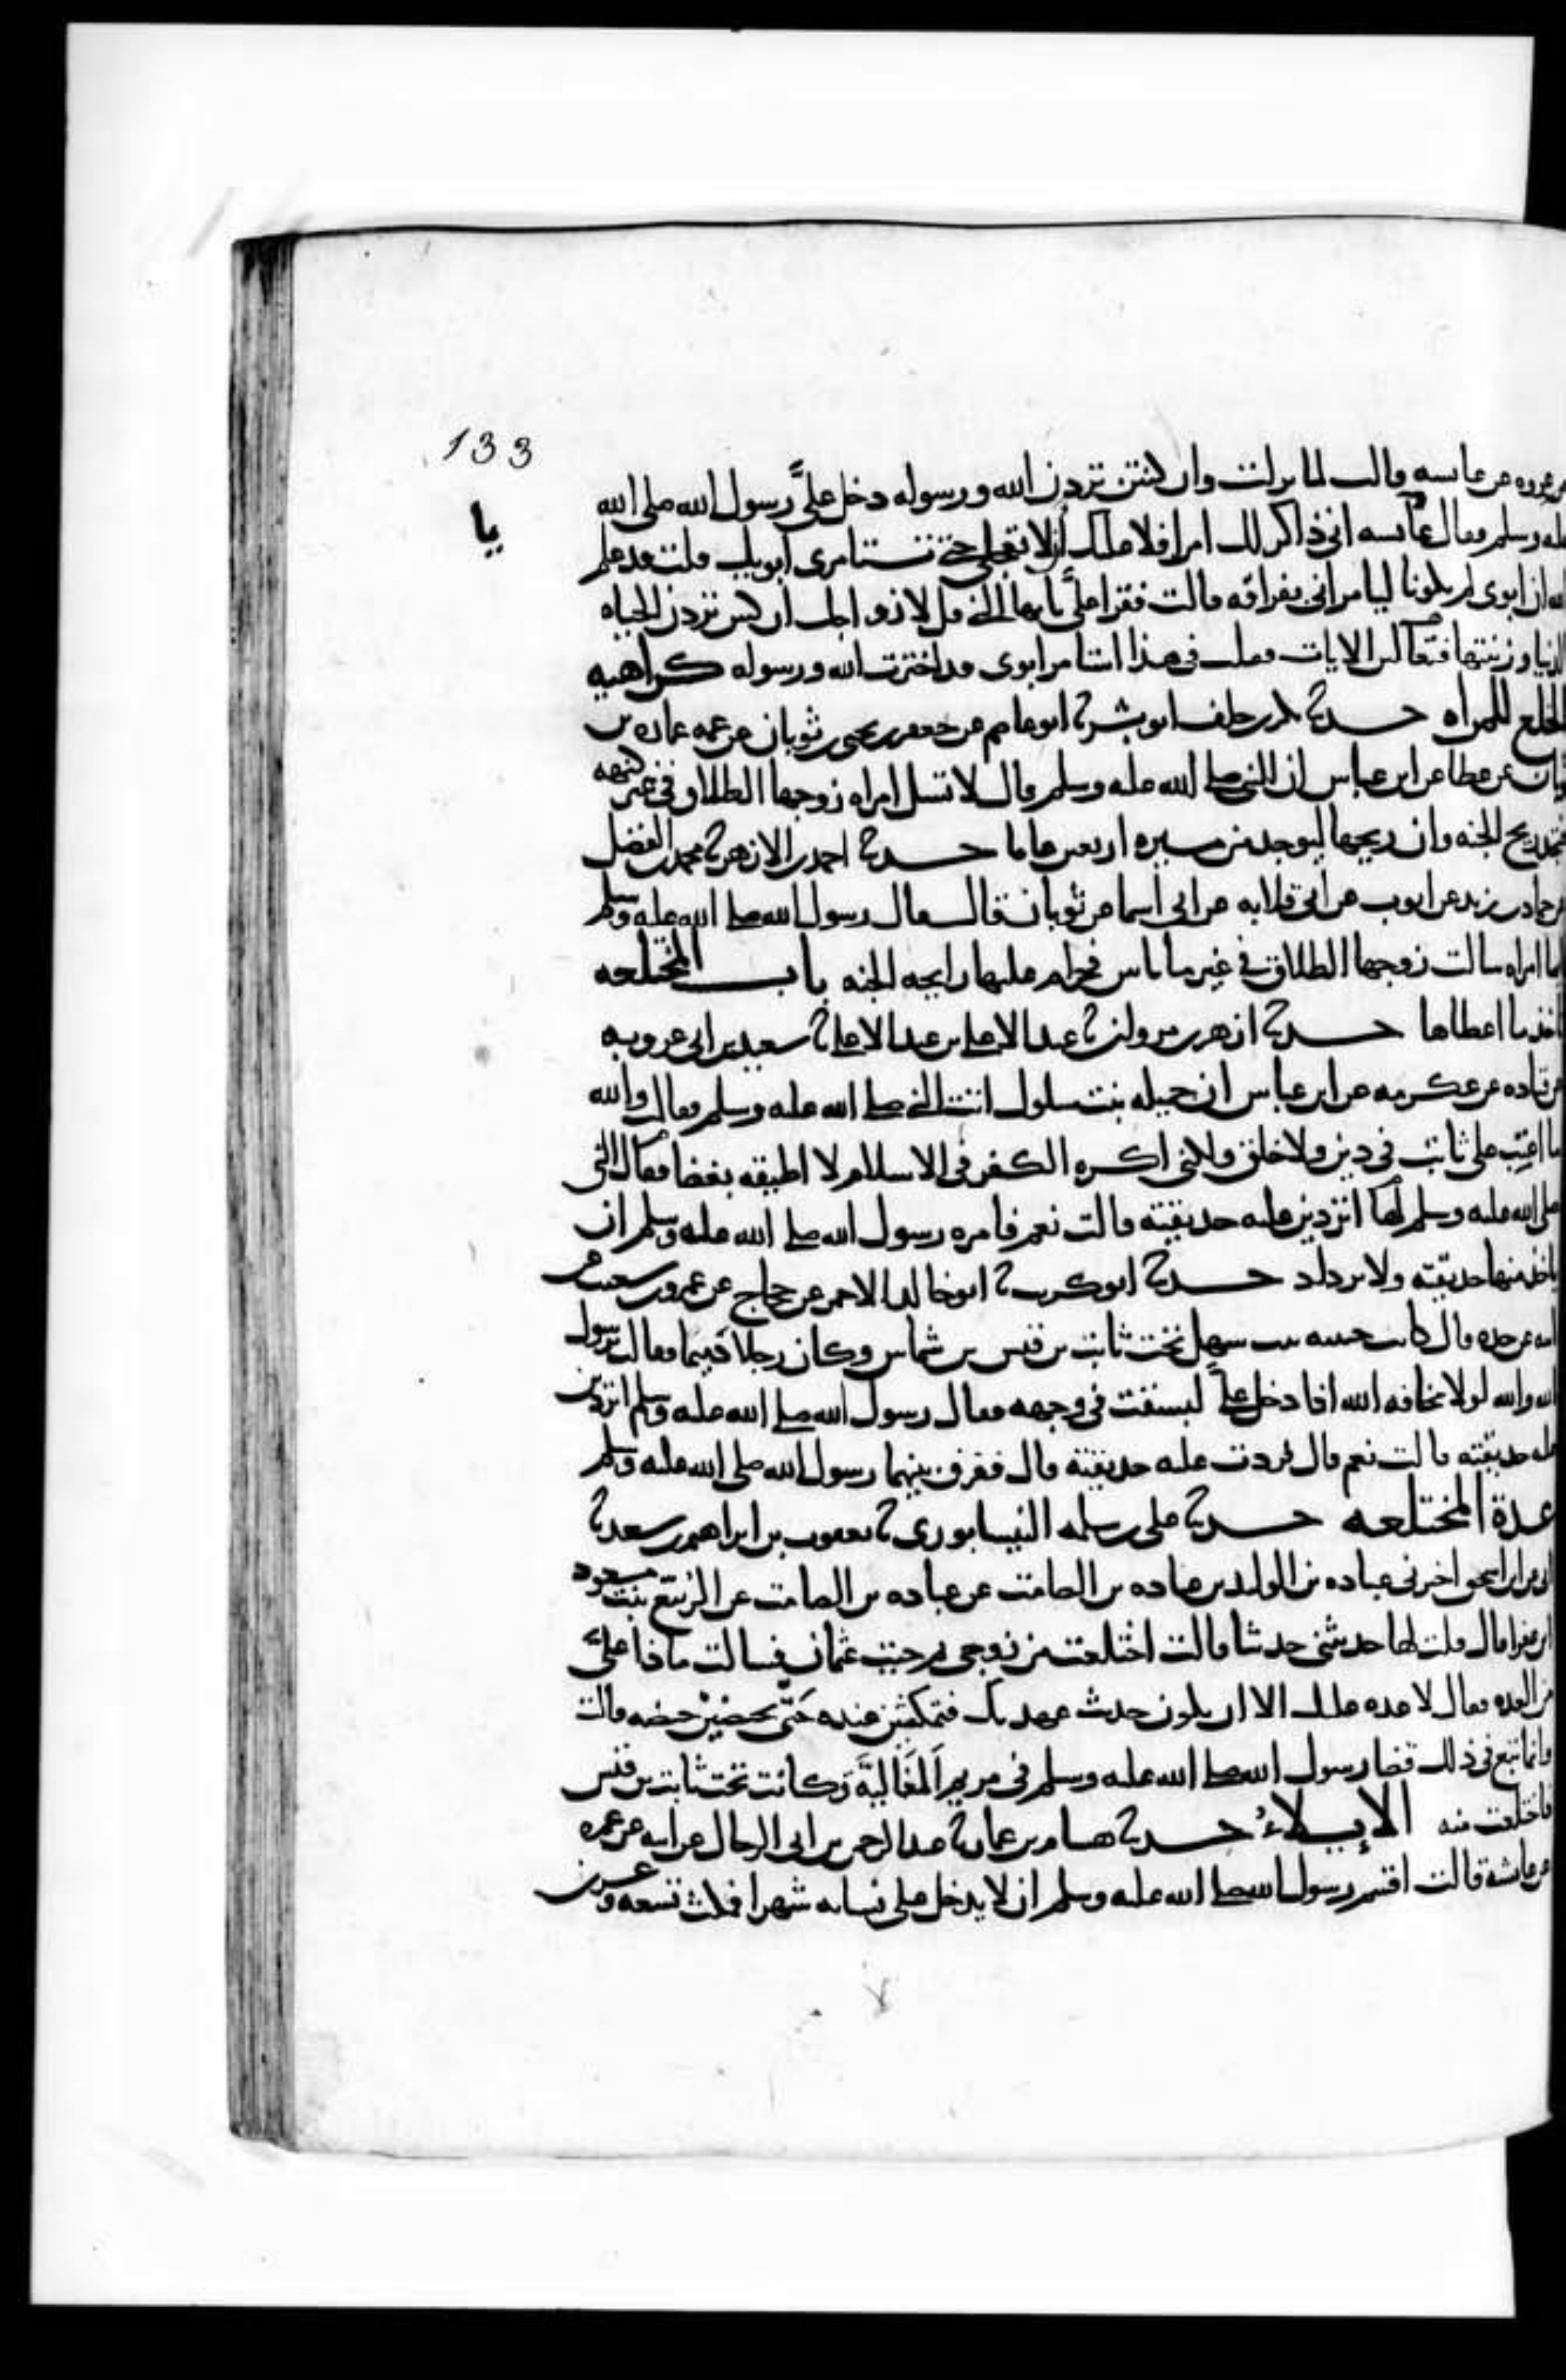 133
يا
عن عروه عن عايسه قالت لما نزلت وان كنتن تردن الله ورسوله دخل عليَّ رسول الله صلى الله
عليه وسلم فقال يا عايسه انى ذاكر لك امرا فلا عليك أن لا تعجلى حتى تستامرى ابويك قلت قد علم
الله ان ابوى لم يكونا ليامرانى بفراقه قالت فقرا عليَّ يا ايها النبى قل لازواجك ان كنتن تردن الحياه
الدنيا وزينتها فتعالين الايات فقلت فى هذا استامر ابوى قد اخترت الله ورسوله كراهيه
الخلع للمراه حدثنا بكر بن خلف ابو بشر ثنا ابو عاصم عن جعفر بن يحيى بن ثوبان عن عمه عماره بن
ثوبان عن عطا عن ابن عباس ان النبى صلى الله عليه وسلم قال لا تسل امراه زوجها الطلاق فى غير كنهه
فتجد ريح الجنه وان ريحها ليوجد من مسيره اربعين عاما حدثنا احمد بن الازهر ثنا محمد بن الفضل
عن حماد بن زيد عن ايوب عن ابى قلابه عن ابى اسما عن ثوبان قال قال رسول الله صلى الله عليه وسلم
ايما امراه سالت زوجها الطلاق فى غير ما باس فحرام عليها رايحه الجنه باب المختلعه
ياخذ ما اعطاها حدثنا ازهر بن مروان ثنا عبد الاعلى بن عبد الاعلى ثنا سعيد بن ابى عروبه
عن قتاده عن عكرمه عن ابن عباس ان جميله بنت سلول اتت النبى صلى الله عليه وسلم فقالت والله
ما اعتب على ثابت فى دين ولا خلق ولكنى اكره الكفر فى الاسلام لا اطيقه بغضا فقال النبى
صلى الله عليه وسلم لها اتردين عليه حديقته قالت نعم فامره رسول الله صلى الله عليه وسلم ان
ياخذ منها حديقته ولا يزداد حدثنا ابو كريب ثنا ابو خالد الاحمر عن حجاج عن عمرو بن شعيب عن
ابيه عن جده قال كانت حبيبه بنت سهل تحت ثابت بن قيس بن شماس وكان رجلا دميما فقالت يرسول
الله والله لولا مخافه الله اذا دخل عليَّ لبسقت فى وجهه فقال رسول الله صلى الله عليه وسلم اتردين
عليه حديقته قالت نعم قال فردت عليه حديقته قال ففرق بينهما رسول الله صلى الله عليه وسلم
عدة المختلعه حدثنا على بن سلمه النيسابورى ثنا يعقوب بن ابراهيم بن سعد ثنا
ابى عن ابن اسحق اخبرنى عباده بن الوليد بن عباده بن الصامت عن عباده بن الصامت عن الربيع بنت معوذ
ابن عفرا قال قلت لها حدثينى حديثك قالت اختلعت من زوجى ثم جيت عثمان فسالت ماذا عليَّ
من العده فقال لا عده عليك الا ان يكون حديث عهد بك فتمكثين عنده حتى تحيضين حيضه قالت
وانما تبع فى ذلك قضا رسول الله صلى الله عليه وسلم فى مريم المغاليَّة وكانت تحت ثابت بن قيس
فاختلعت منه الإيلاءُ حدثنا هشام بن عمار ثنا عبد الرحمن بن ابى الرجال عن ابيه عن عمره
عن عايشه قالت اقسم رسول الله صلى الله عليه وسلم ان لا يدخل على نسايه شهرا فمكث تسعه وعشرين